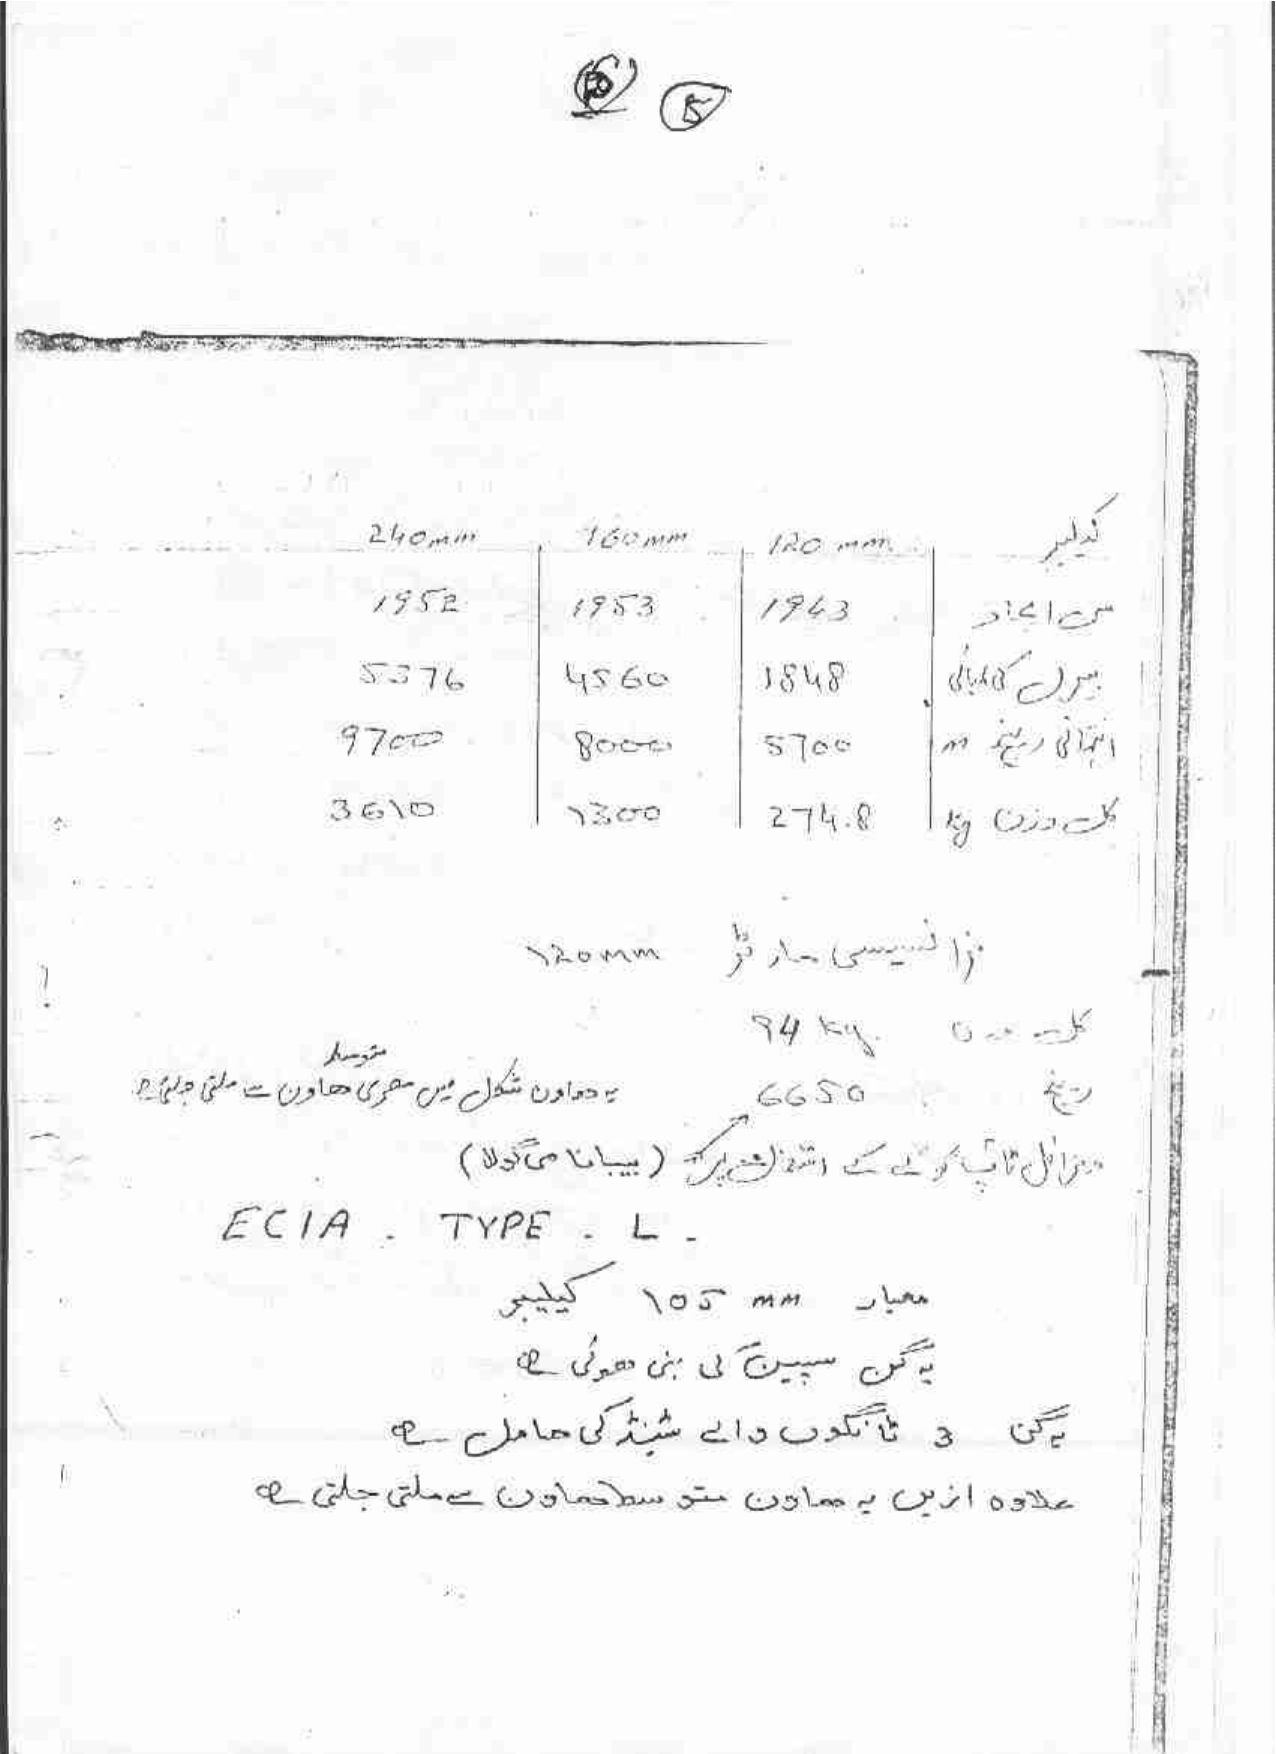 5
کیلیبر 120 mm 160 mm 240 mm
سن ایجاد 1943 1953 1952
بیرل کی لمبائی 1848 4560 5376
انتہائی رینج m 5700 8000 9700
کل وزن kg 274.8 1300 3610
فرانسیسی مارٹر 120 mm
کل وزن 94 kg.
رینج 6650 یہ ھاون شکل میں مصری متوسط ھاون سے ملتی جلتی ہے
میزائل ٹائپ گولے کے
ECIA . TYPE . L .
معیار 105 mm کیلیبر
یہ گن سپین کی بنی ھوئی ہے
یہ گن 3 ٹانگوں والے سٹینڈ کی حامل ہے
علاوہ ازیں یہ ھاون متوسط ھاون سے ملتی جلتی ہے